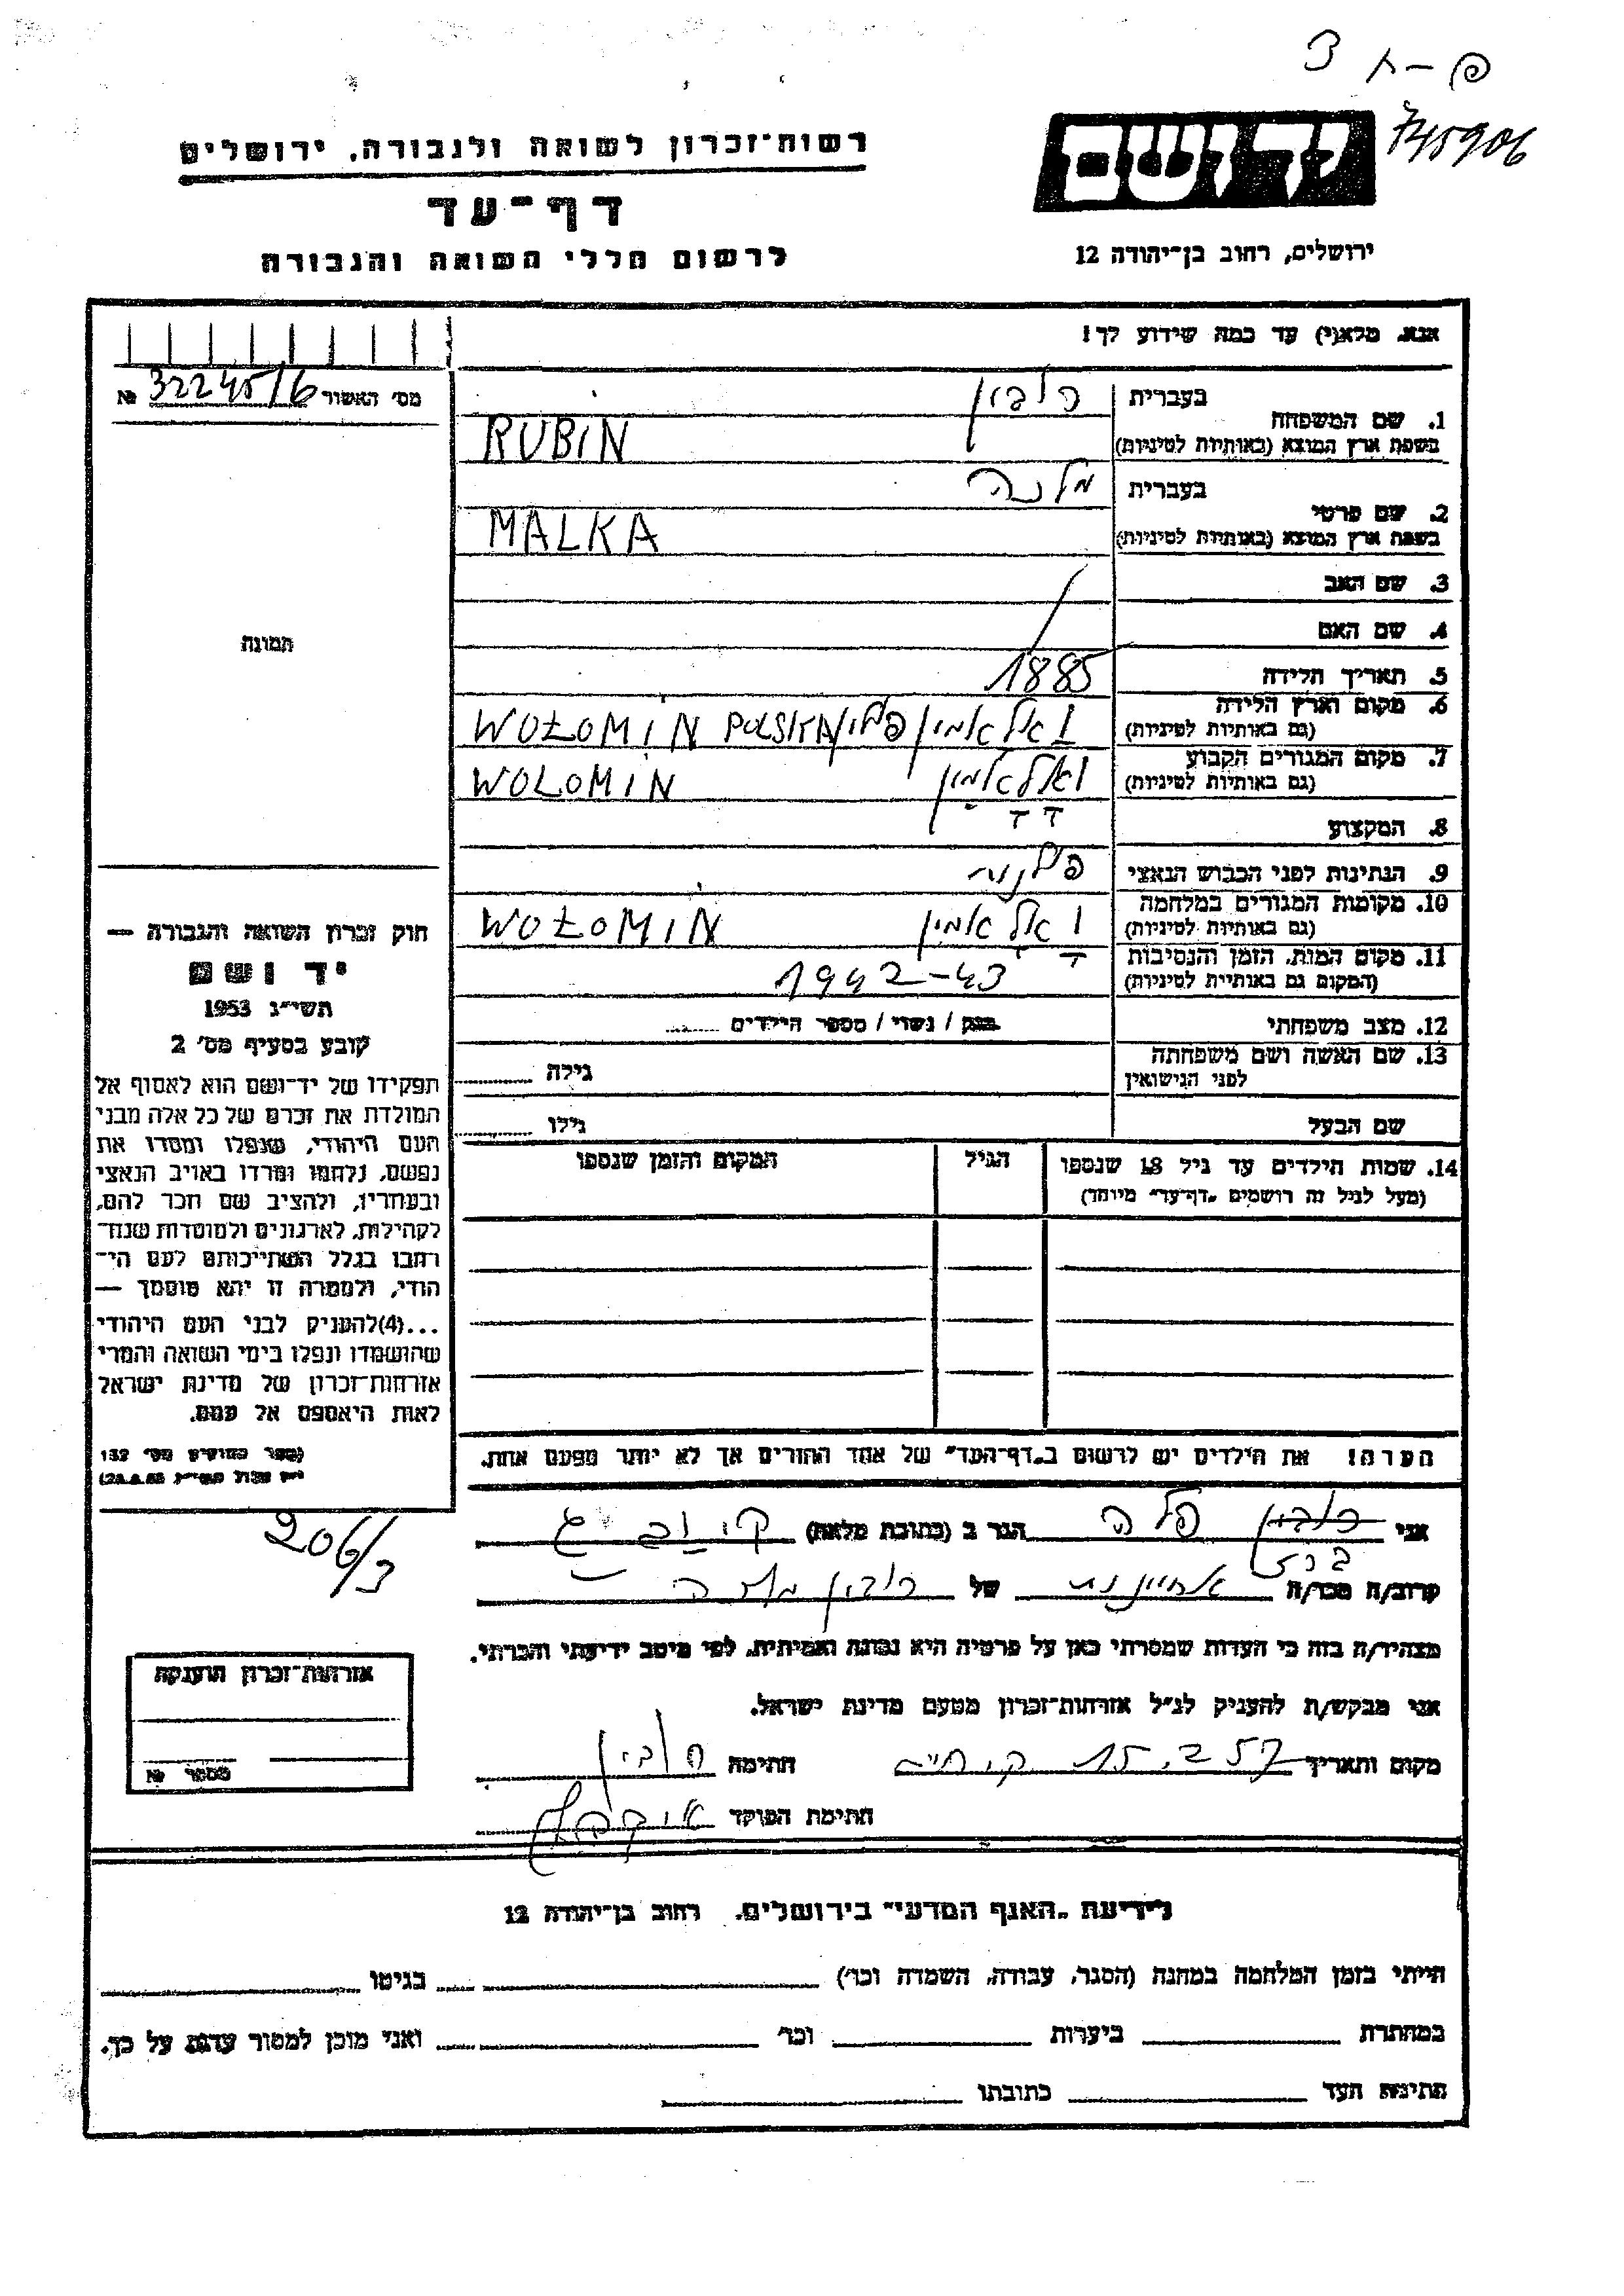 פ-ת 3
745906
רשות־זכרון לשואה ולגבורה, ירושלים
יד ושם
דף־עד
לרשום חללי השואה והגבורה
ירושלים, רחוב בן־יהודה 12
אנא, מלא(י) עד כמה שידוע לך!
מס׳ האשור № 322451/6
1. שם המשפחה
בעברית רובין
בשפת ארץ המוצא (באותיות לטיניות) RUBIN
2. שם פרטי
בעברית מלכה
בשפת ארץ המוצא (באותיות לטיניות) MALKA
3. שם האב
4. שם האם
תמונה
5. תאריך הלידה 1885
6. מקום וארץ הלידה (גם באותיות לטיניות) וואלאמין פולין WOŁOMIN POLSKA
7. מקום המגורים הקבוע (גם באותיות לטיניות) וואלאמין WOLOMIN
8. המקצוע
9. הנתינות לפני הכבוש הנאצי פולנית
10. מקומות המגורים במלחמה (גם באותיות לטיניות) וואלאמין WOŁOMIN
11. מקום המות, הזמן והנסיבות (המקום גם באותיות לטיניות) 1942-43
12. מצב משפחתי רווק / נשוי / מספר הילדים
13. שם האשה ושם משפחתה לפני הנישואין גילה
שם הבעל גילו
14. שמות הילדים עד גיל 18 שנספו
(מעל לגיל זה רושמים „דף־עד״ מיוחד)
הגיל
המקום והזמן שנספו
חוק זכרון השואה והגבורה —
יד ושם
תשי״ג 1953
קובע בסעיף מס׳ 2
תפקידו של יד־ושם הוא לאסוף אל
המולדת את זכרם של כל אלה מבני
העם היהודי, שנפלו ומסרו את
נפשם, נלחמו ומרדו באויב הנאצי
ובעוזריו, ולהציב שם וזכר להם,
לקהילות, לארגונים ולמוסדות שנח־
רבו בגלל השתייכותם לעם הי־
הודי, ולמטרה זו יהא מוסמך —
...(4) להעניק לבני העם היהודי
שהושמדו ונפלו בימי השואה והמרי
אזרחות־זכרון של מדינת ישראל
לאות היאספם אל עמם.
(ספר החוקים מס׳ 132
הערה! את הילדים יש לרשום ב„דף־העד״ של אחד ההורים אך לא יותר מפעם אחת.
206/3
אני רובין הגר ב (כתובת מלאה)
ברז
קרוב/ה מכר/ה אחיינית של רובין מלכה
מצהיר/ה בזה כי העדות שמסרתי כאן על פרטיה היא נכונה ואמיתית, לפי מיטב ידיעתי והכרתי.
אני מבקש/ת להעניק לנ״ל אזרחות־זכרון מטעם מדינת ישראל.
מקום ותאריך 15.2.57 חתימה רובין
חתימת הפוקד
אזרחות־זכרון הוענקה
מספר №
לידיעת „האגף המדעי״ בירושלים, רחוב בן־יהודה 12
הייתי בזמן המלחמה במחנה (הסגר, עבודה, השמדה וכו׳) בגיטו
במחתרת ביערות וכו׳ ואני מוכן למסור עדות על כך.
חתימת העד כתובתו